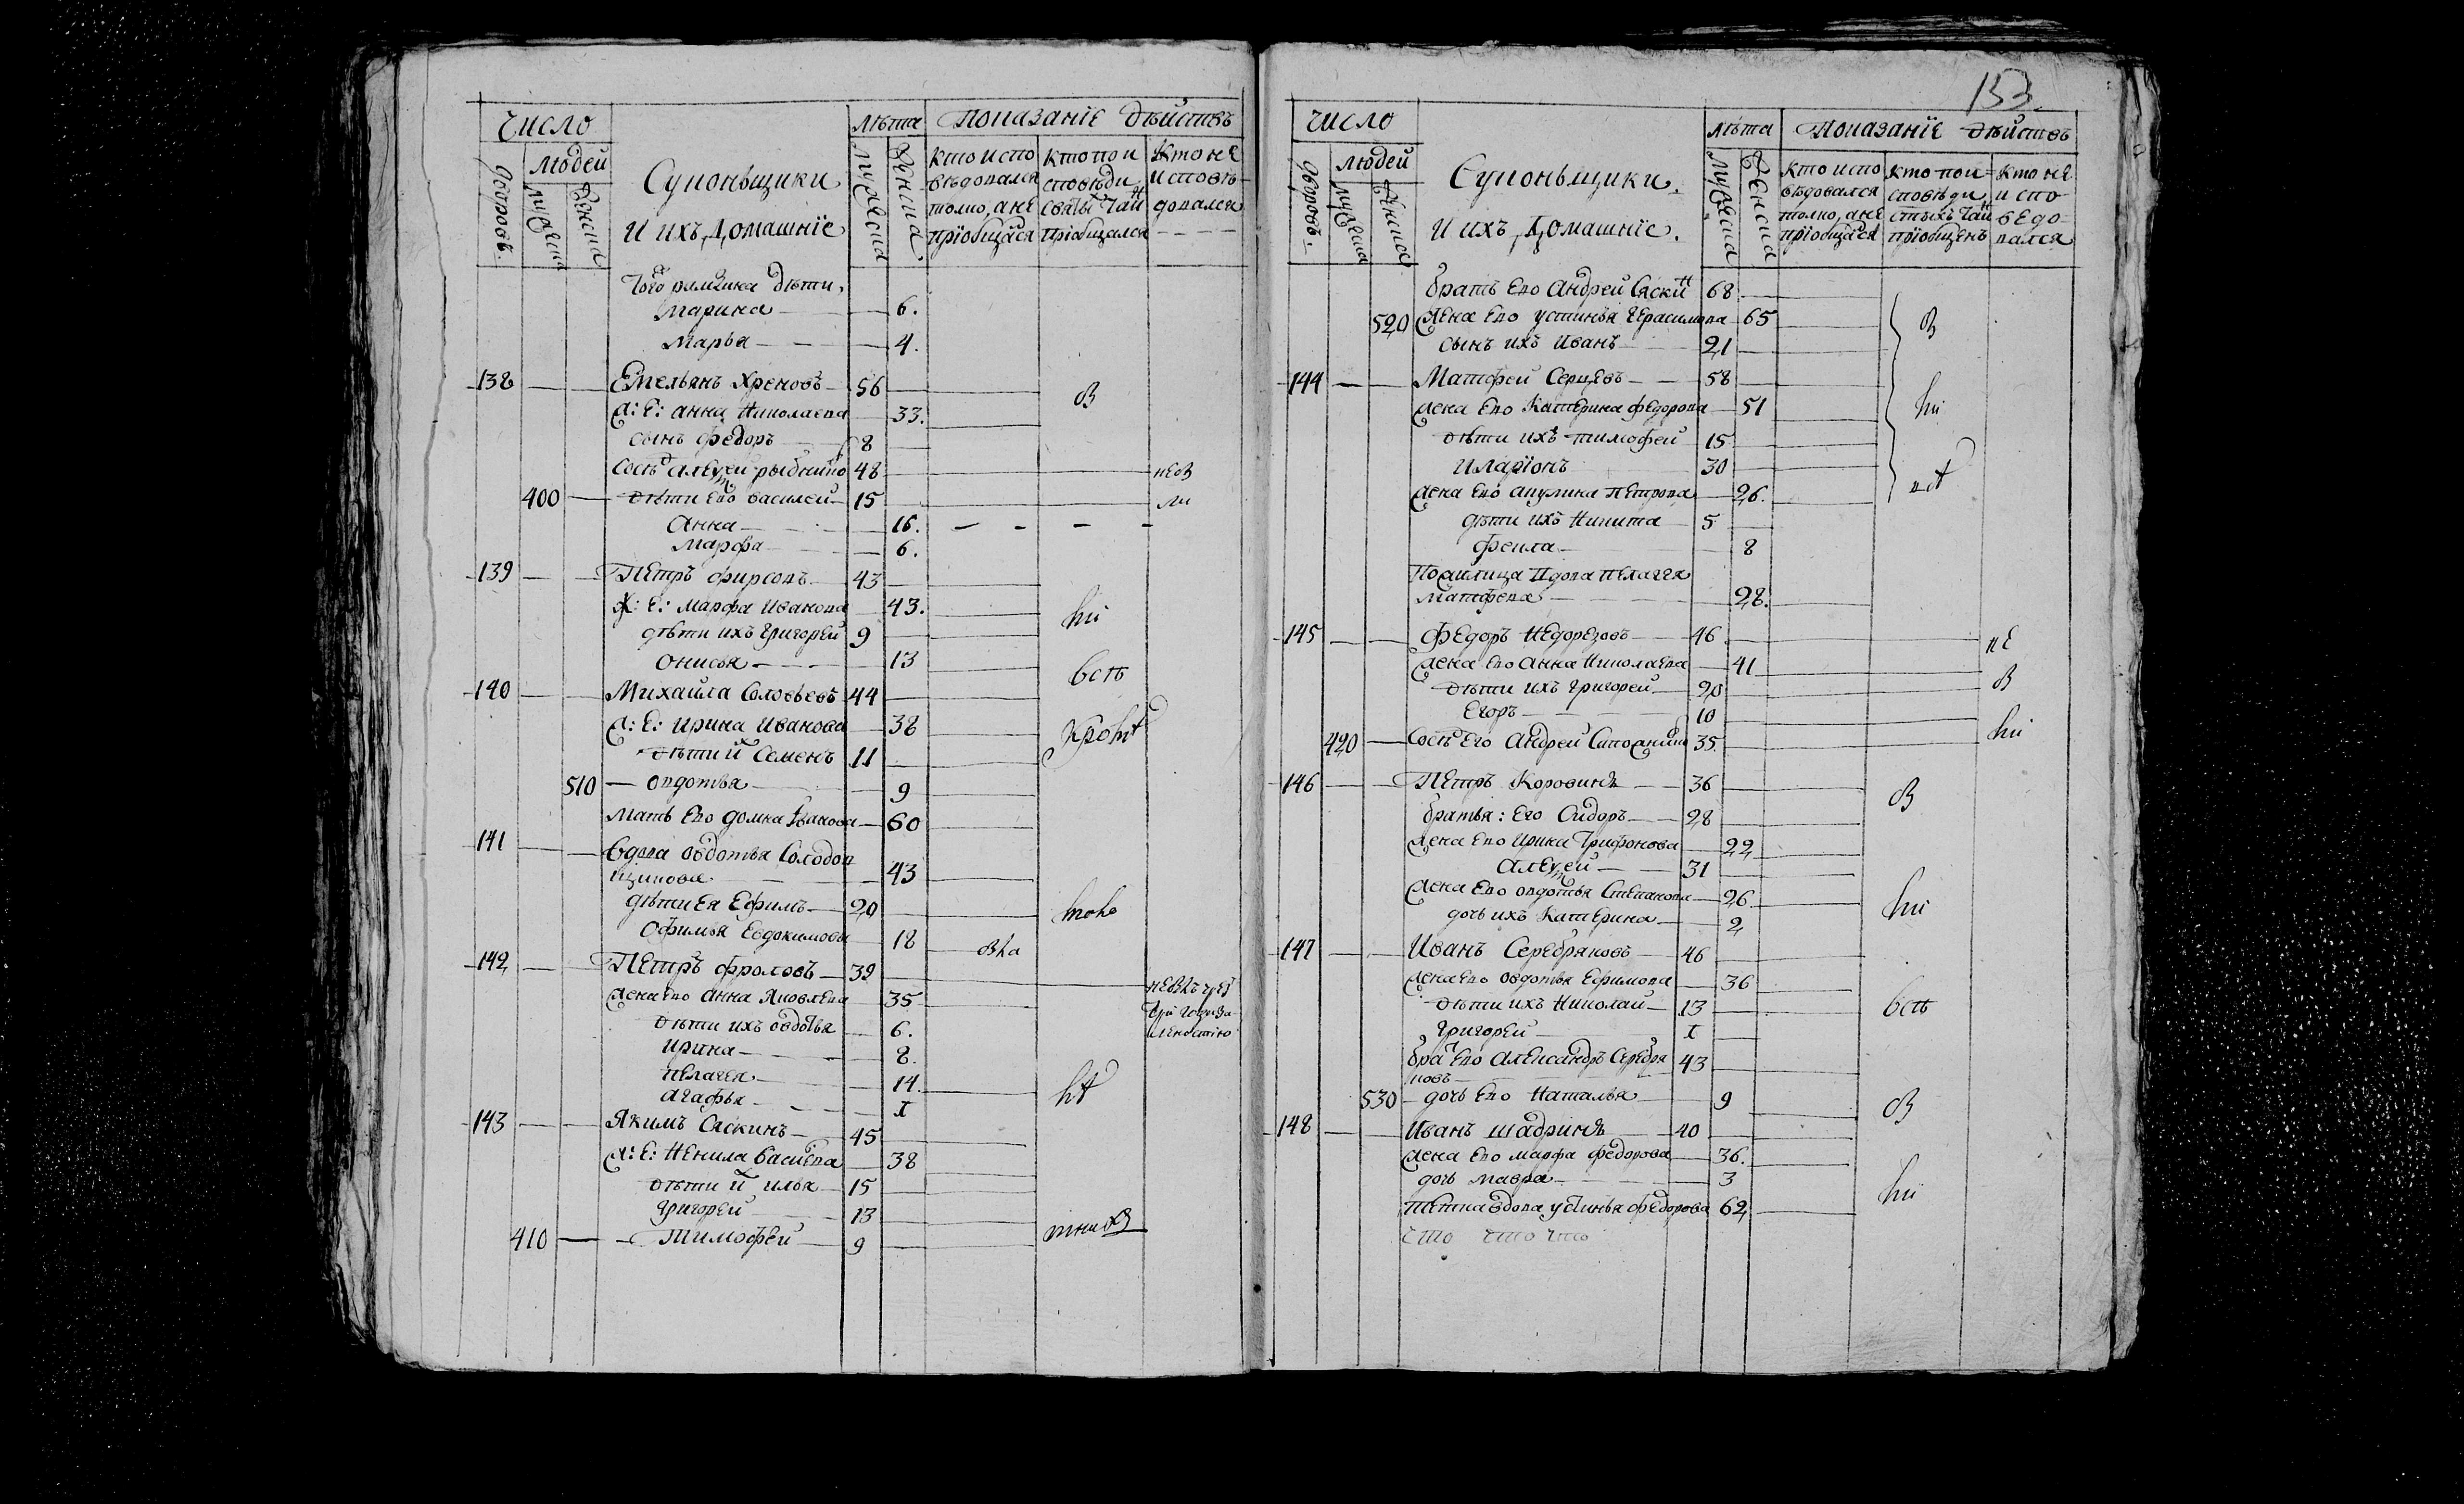 число
лѣта
Показанїе дѣйствъ
дворовъ.
людей
мужеска
женска
Супоньщики
и ихъ домашнїе
мужеска
женска
кто испо
вѣдовался
толко, а не
прїобщался
кто по и
сповѣди
святы таин
прїобщался
кто не
исповѣ-
довался
Того ... дѣти,
Марина 6.
Марья 4.
138 Емельянъ Хреновъ 56
ж: е: Анна Николаева 33.
сынъ Федоръ 8
Алеѯей 48
400 дѣти его Василей 15
Анна 16.
Марфа 6.
139 Петръ Фирсовъ 43
ж: е: Марфа Иванова 43.
дѣти ихъ Григорей 9
Онисья 13
140 Михайла Соловьевъ 44
ж: е: Ирина Иванова 38
дѣти их Семенъ 11
510 Овдотья 9
мать его Домна Иванова 60
141 вдова Овдотья Солодов
щикова 43
дѣти ея Ефимъ 20
Офимья Евдокимова 18
142 Петръ Фроловъ 39
жена его Анна Яковлева 35
дѣти ихъ Овдотья 6.
Ирина 8.
Пелагея 14.
Агафья 1
143 Якимъ Саскинъ 45
ж: е: Ненила Васильева 38
дѣти их Илья 15
Григорей 13
410 Тимофей 9
153.
число
лѣта
Показанїе дѣйствъ
дворовъ.
людей
мужеска
женска
Супоньщики.
и ихъ домашнїе.
мужеска
женска
кто испо
вѣдовался
толко, а не
прїобщался
кто по и=
сповѣди
стыхъ таин
прїобщенъ
кто не
испо
ведо-
вался
братъ его Андрей Саскин 68
520 жена его Устинья Герасимова 65
сынъ ихъ Иванъ 21
144 Матфей Серцевъ 58
жена его Катерина Федорова 51
дѣти ихъ Тимофей 15
Иларїонъ 30
жена его Акулина Петрова 26.
дѣти ихъ Никита 5
Фекла 8
вдова Пелагея
Матфева 28.
145 Федоръ Недорезовъ 46
жена его Анна Николаева 41
дѣти ихъ Григорей 20
Егоръ 10
420 Его Андрей 35
146 Петръ Коровинъ 36
братья: его Сидоръ 28
жена его Ирина Трифонова 22
Алеѯей 31
жена его Овдотья Степанова 26
дочь ихъ Катерина 2
147 Иванъ Серебряковъ 46
жена его Овдотья Ефимова 36
дѣти ихъ Николай 13
Григорей 1
брат его Александръ Серебря
ковъ 43
530 дочь его Наталья 9
148 Иванъ Шадринъ 40
жена его Марфа Федорова 36.
дочь Мавра 3
тетка вдова Устинья Федорова 62